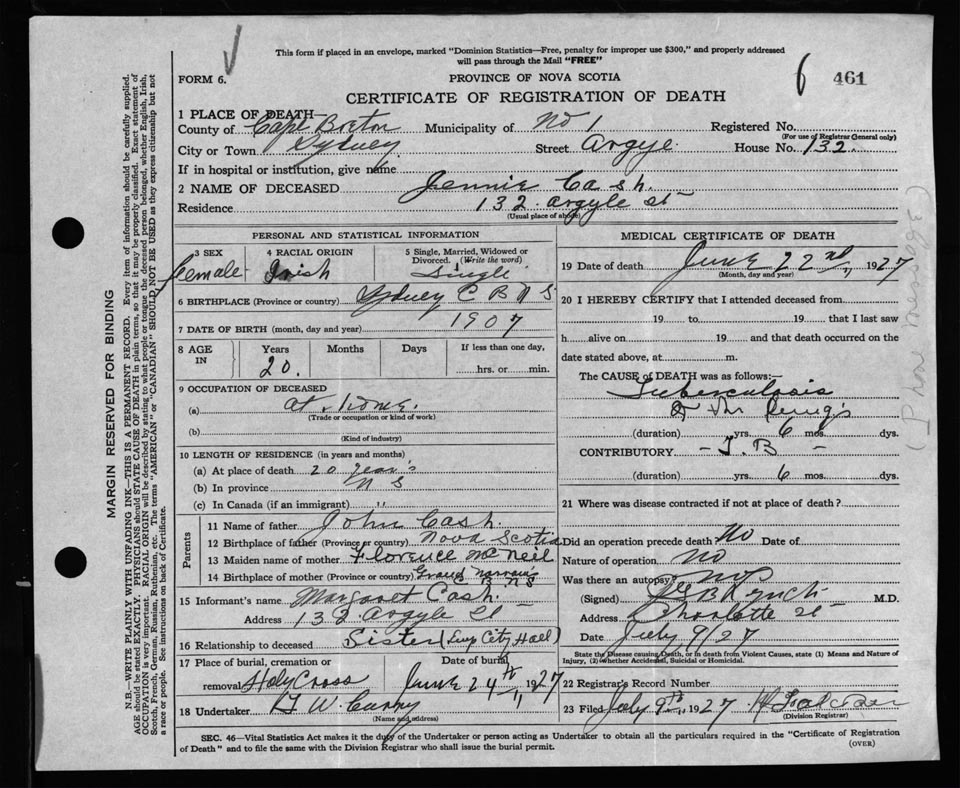 This form if placed in an envelope, marked "Dominion Statistics—Free, penalty for improper use $300," and properly addressed
will pass through the Mail "FREE"
FORM 6.
PROVINCE OF NOVA SCOTIA
6 461
CERTIFICATE OF REGISTRATION OF DEATH
1 PLACE OF DEATH—
County of Cape Breton Municipality of No 1 Registered No.
(For use of Registrar General only)
City or Town Sydney Street Argye. House No. 132.
If in hospital or institution, give name
2 NAME OF DECEASED Jennie Cash.
Residence 132 Argyle St
(Usual place of abode)
PERSONAL AND STATISTICAL INFORMATION
3 SEX Female
4 RACIAL ORIGIN Irish
5 Single, Married, Widowed or Divorced. (Write the word) Single
6 BIRTHPLACE (Province or country) Sydney C B N S
7 DATE OF BIRTH (month, day and year) 1907
8 AGE IN Years Months Days If less than one day,
20. hrs. or min.
9 OCCUPATION OF DECEASED
(a) at home.
(Trade or occupation or kind of work)
(b)
(Kind of industry)
10 LENGTH OF RESIDENCE (in years and months)
(a) At place of death 20 year's
(b) In province N S
(c) In Canada (if an immigrant) "
Parents
11 Name of father John Cash.
12 Birthplace of father (Province or country) Nova Scotia
13 Maiden name of mother Florence McNeil
14 Birthplace of mother (Province or country) Grand Narrows
C B N S
15 Informant's name Margaret Cash.
Address 132 Argyle St
16 Relationship to deceased Sister (Emp City Hall)
17 Place of burial, cremation or removal Holy Cross
Date of burial June 24th, 1927
18 Undertaker
(Name and address)
MEDICAL CERTIFICATE OF DEATH
19 Date of death June 22nd, 1927
(Month, day and year)
20 I HEREBY CERTIFY that I attended deceased from
19 to 19 that I last saw
h alive on 19 and that death occurred on the
date stated above, at m.
The CAUSE OF DEATH was as follows:—
Tuberculosis
of the Lung's
(duration) yrs. 6 mos. dys.
CONTRIBUTORY - T. B -
(duration) yrs. 6 mos. dys.
21 Where was disease contracted if not at place of death?
Did an operation precede death No Date of
Nature of operation no
Was there an autopsy no
(Signed) Lynch M.D.
Address Charlotte St
Date July 9/27
State the Disease causing Death, or in death from Violent Causes, state (1) Means and Nature of
Injury, (2) whether Accidental, Suicidal or Homicidal.
22 Registrar's Record Number
23 Filed July 9th, 1927
(Division Registrar)
SEC. 46—Vital Statistics Act makes it the duty of the Undertaker or person acting as Undertaker to obtain all the particulars required in the "Certificate of Registration
of Death" and to file the same with the Division Registrar who shall issue the burial permit.
(OVER)
MARGIN RESERVED FOR BINDING
N.B.—WRITE PLAINLY WITH UNFADING INK—THIS IS A PERMANENT RECORD. Every item of information should be carefully supplied.
AGE should be stated EXACTLY. PHYSICIANS should STATE CAUSE OF DEATH in plain terms, so that it may be properly classified. Exact statement of
OCCUPATION is very important. RACIAL ORIGIN will be described by stating to what people or tongue the deceased person belonged, whether English, Irish,
Scotch, French, German, Russian, Ruthenian, etc. The terms "AMERICAN" or "CANADIAN" SHOULD NOT BE USED as they express citizenship but not
a race or people. See instructions on back of Certificate.